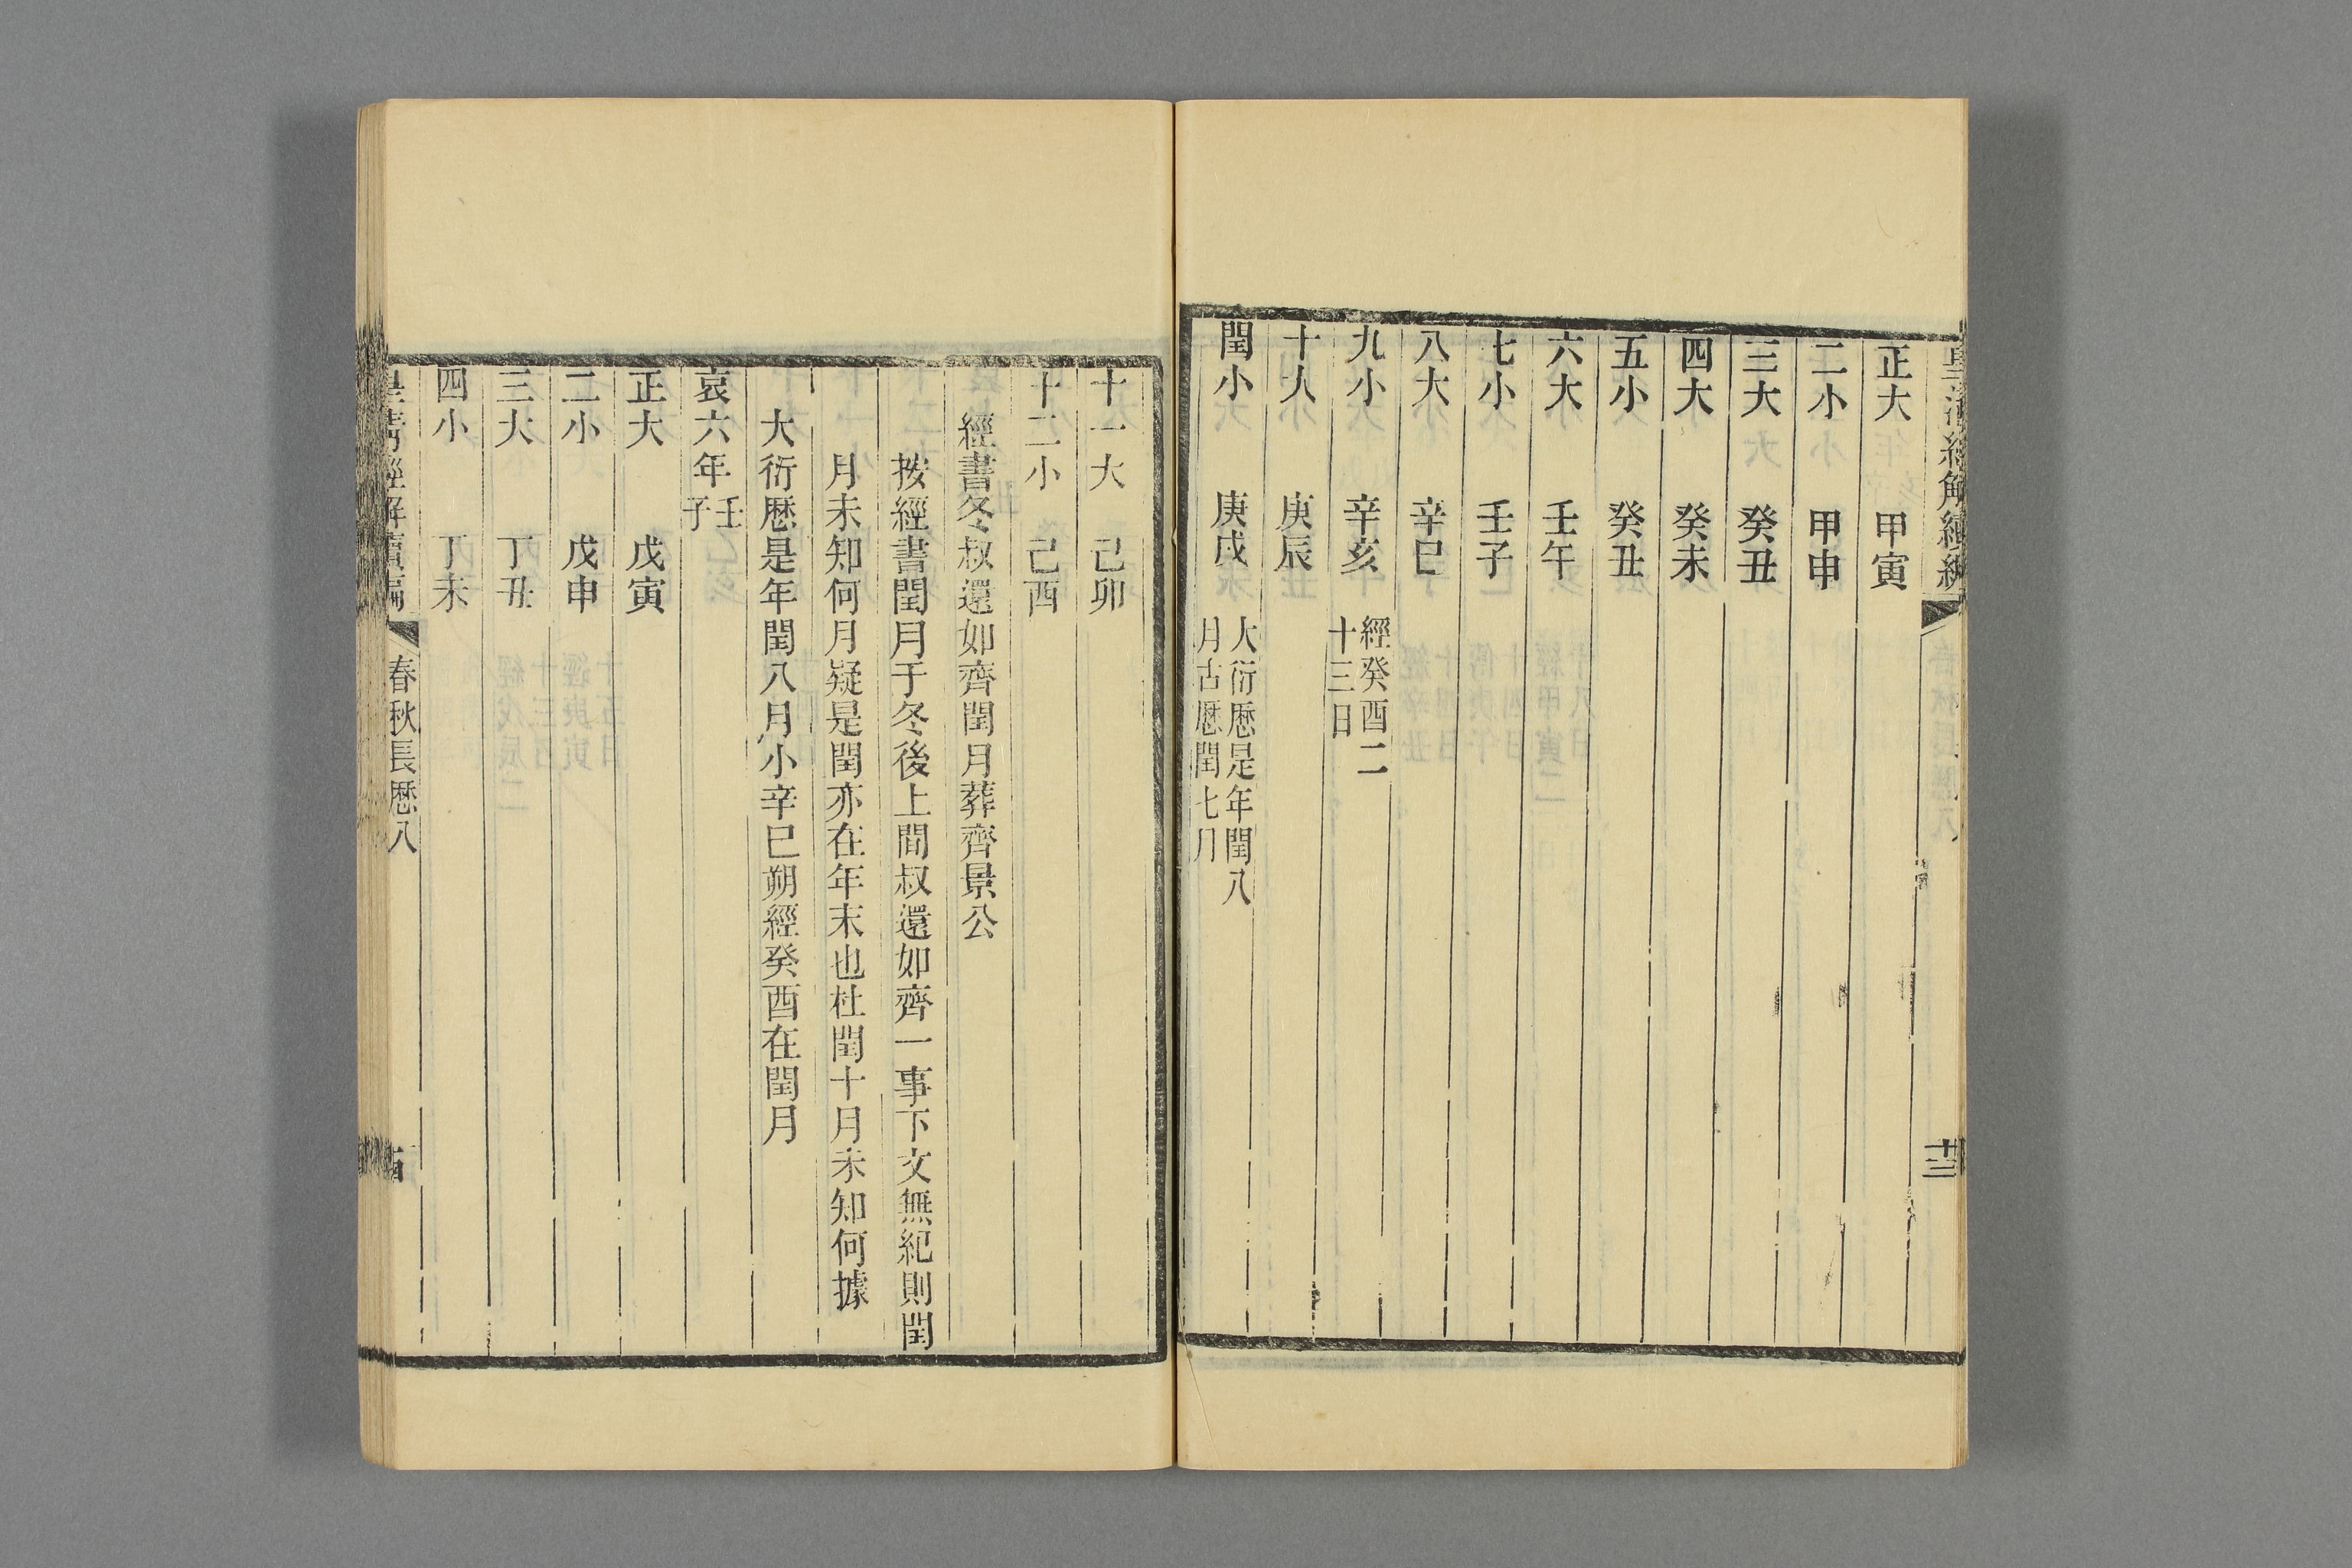 皇清經解續編
十三
正大 甲寅
二小 甲申
三大 癸丑
四大 癸未
五小 癸丑
六大 壬午
七小 壬子
八大 辛巳
九小 辛亥 經癸酉二
十三日
十大 庚辰
閏小 庚戌 大衍厯是年閏八
月古厯閏七月
十一大 己卯
十二小 己酉
經書冬叔還如齊閏月葬齊景公
按經書閏月于冬後上間叔還如齊一事下文無紀則閏
月未知何月疑是閏亦在年末也杜閏十月未知何據
大衍厯是年閏八月小辛巳朔經癸酉在閏月
哀六年壬
子
正大 戊寅
二小 戊申
三大 丁丑
四小 丁未
皇清經解續編
春秋長厯八